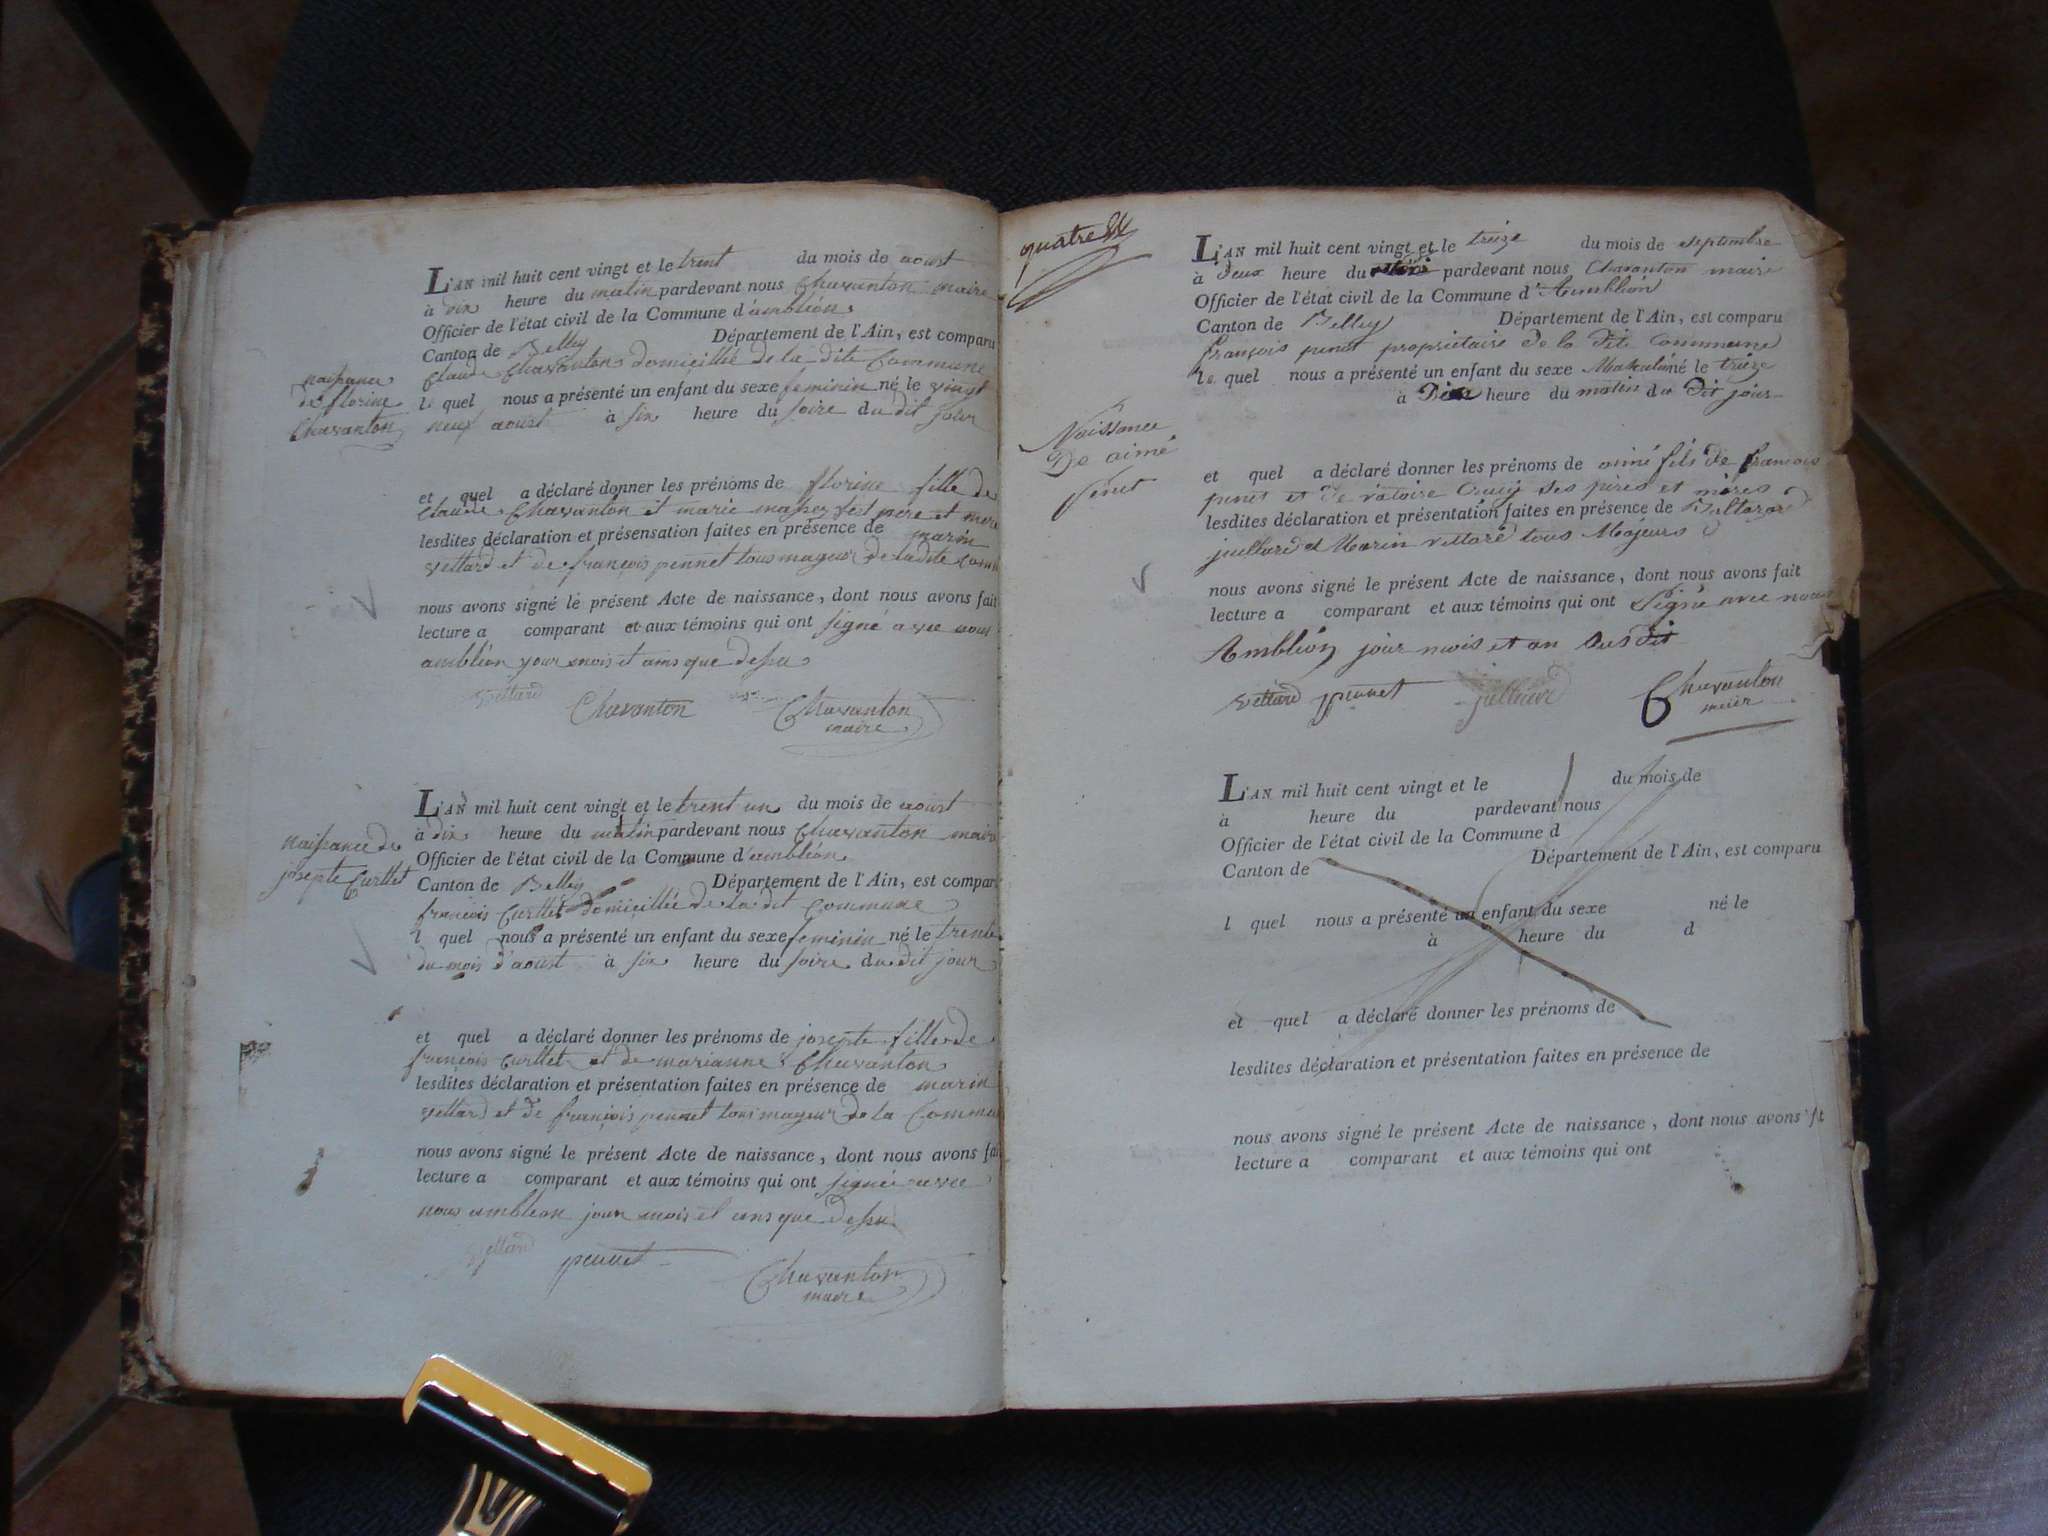 L'AN mil huit cent vingt et le trent du mois de aoust
à dix heure du matin pardevant nous Chavanton maire
Officier de l'état civil de la Commune d'ambléon
Canton de Belley Département de l'Ain, est comparu
Claude Chavanton domicillié de la dite Commune
le quel nous a présenté un enfant du sexe feminin né le vingt
neuf aoust à six heure du soire du dit jour
naissance
de florine
Chavanton
et quel a déclaré donner les prénoms de florine fille de
Claude Chavanton et marie père et mere
lesdites déclaration et présensation faites en présence de marin
vettard et de françois pennet tous mageur de ladite Com
nous avons signé le présent Acte de naissance, dont nous avons fait
lecture a comparant et aux témoins qui ont signé avec nous
ambléon your mois et ams que dessu
vettard Chavanton Chavanton
maire
L'AN mil huit cent vingt et le trent un du mois de aoust
à dix heure du matin pardevant nous Chavanton maire
Officier de l'état civil de la Commune d'ambléon
Canton de Belley Département de l'Ain, est compar
françois Curllet domicillée de la dit Commune
l quel nous a présenté un enfant du sexe feminin né le trente
du mois d'aoust à six heure du soire du dit jour
naissance de
josepte Curllet
et quel a déclaré donner les prénoms de josepte fille de
françois Curllet et de marianne Chavanton
lesdites déclaration et présentation faites en présence de marin
vettard et de françois pennet tous mageur de la Commu
nous avons signé le présent Acte de naissance, dont nous avons fai
lecture a comparant et aux témoins qui ont signé avec
nous ambleon jour mois et ams que dessu
vettard pennet Chavanton
maire
quatre
L'AN mil huit cent vingt et le treize du mois de septembre
à deux heure du pardevant nous Chavanton maire
Officier de l'état civil de la Commune d'Ambléon
Canton de Belley Département de l'Ain, est comparu
françois penet propriétaire de la dite Commune
le quel nous a présenté un enfant du sexe Masculin né le treize
à Dix heure du matin du Dit jour
Naissance
De aimé
Penet
et quel a déclaré donner les prénoms de aimé fils de francois
penet et de ses pères et mères
lesdites déclaration et présentation faites en présence de Baltazard
juillard et Marin vettard tous Majeurs
nous avons signé le présent Acte de naissance, dont nous avons fait
lecture a comparant et aux témoins qui ont Signé avec nous
Ambléon jour mois et an susdit
vettard pennet juillard Chavanton
L'AN mil huit cent vingt et le du mois de
à heure du pardevant nous
Officier de l'état civil de la Commune d
Canton de Département de l'Ain, est comparu
l quel nous a présenté un enfant du sexe né le
à heure du d
et quel a déclaré donner les prénoms de
lesdites déclaration et présentation faites en présence de
nous avons signé le présent Acte de naissance, dont nous avons ft
lecture a comparant et aux témoins qui ont